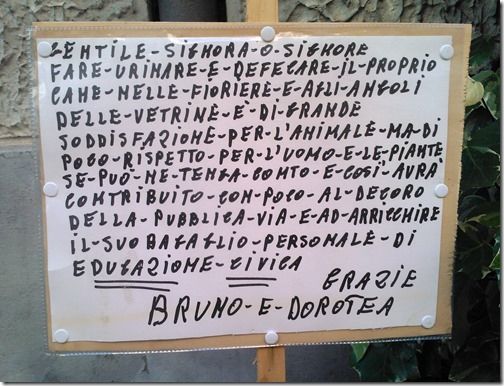 GENTILE-SIGNORA-O-SIGNORE
FARE-URINARE-E-DEFECARE-IL-PROPRIO
CANE-NELLE-FIORIERE-E-AGLI-ANGOLI
DELLE-VETRINE-È-DI-GRANDE
SODDISFAZIONE-PER-L'ANIMALE-MA-DI
POCO-RISPETTO-PER-L'UOMO-E-LE-PIANTE
SE-PUÒ-NE-TENGA-CONTO-E-COSI'-AVRÀ
CONTRIBUITO-CON-POCO-AL-DECORO
DELLA-PUBBLICA-VIA-E-AD-ARRICCHIRE
IL-SUO BAGAGLIO-PERSONALE-DI
EDUCAZIONE-CIVICA
GRAZIE
BRUNO-E-DOROTEA